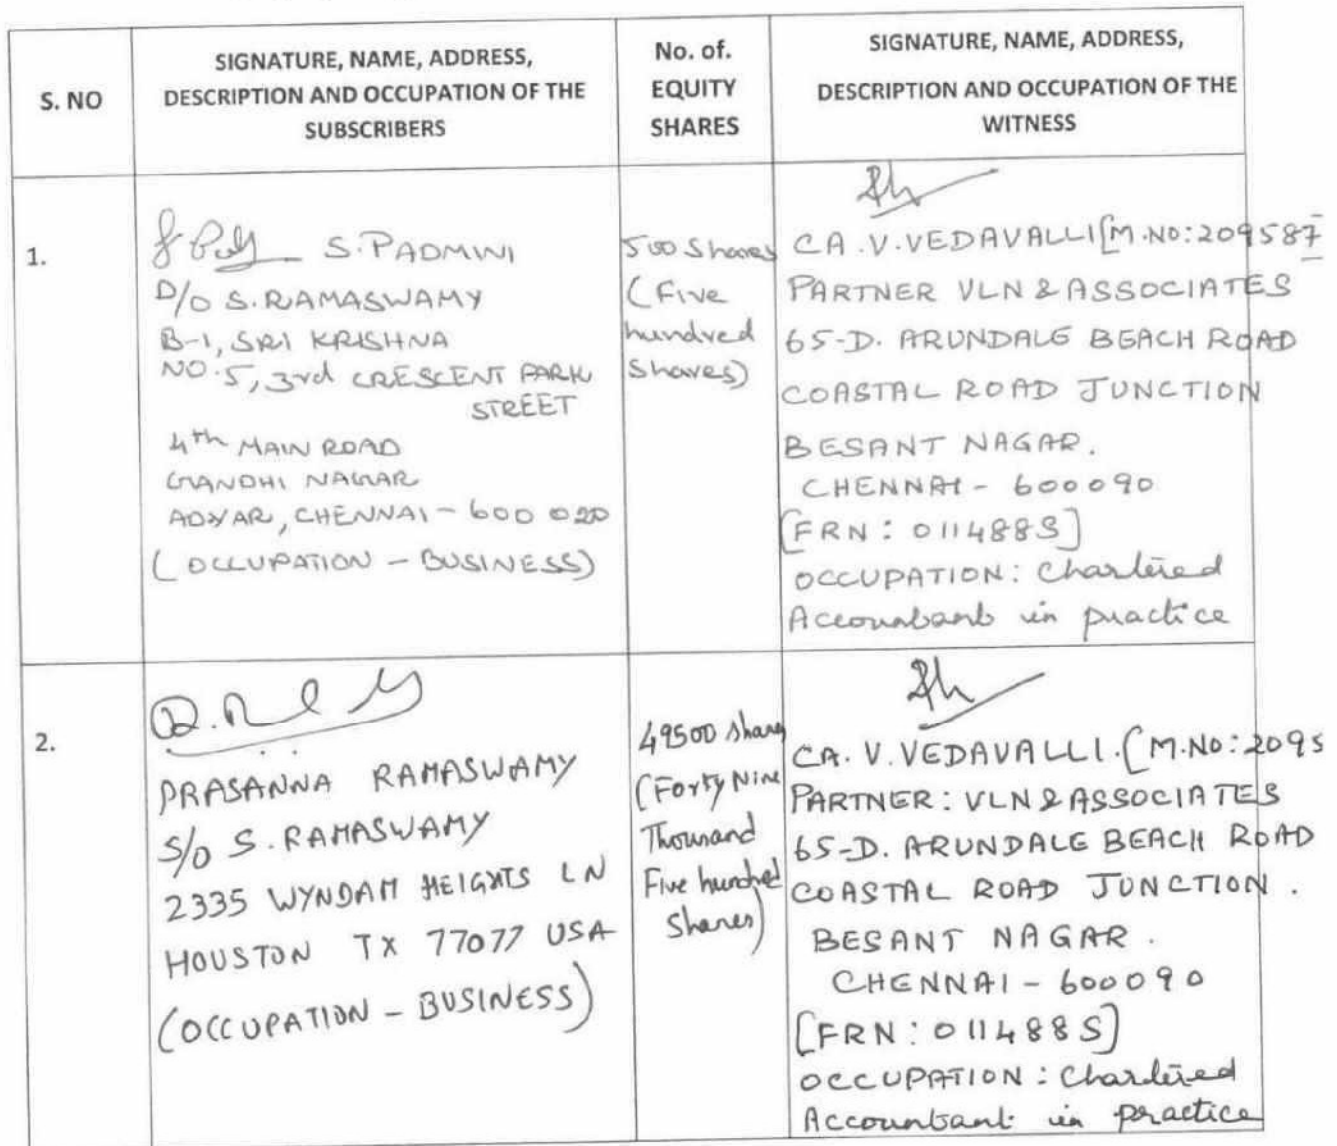 S. NO
SIGNATURE, NAME, ADDRESS,
DESCRIPTION AND OCCUPATION OF THE
SUBSCRIBERS
No. of.
EQUITY
SHARES
SIGNATURE, NAME, ADDRESS,
DESCRIPTION AND OCCUPATION OF THE
WITNESS
1.
S. PADMINI
D/O S. RAMASWAMY
B-1, SRI KRISHNA
NO. 5, 3rd CRESCENT PARK
STREET
4th MAIN ROAD
GANDHI NAGAR
ADYAR, CHENNAI - 600 020
(OCCUPATION - BUSINESS)
500 Shares
(Five
hundred
Shares)
CA. V. VEDAVALLI [M.NO: 209587
PARTNER VLN & ASSOCIATES
65-D. ARUNDALE BEACH ROAD
COASTAL ROAD JUNCTION
BESANT NAGAR.
CHENNAI - 600090
[FRN: 011488S]
OCCUPATION: Chartered
Accountant in practice
2.
PRASANNA RAMASWAMY
S/O S. RAMASWAMY
2335 WYNDAM HEIGHTS LN
HOUSTON TX 77077 USA
(OCCUPATION - BUSINESS)
49500 share
(Forty Nine
Thousand
Five hundred
Shares)
CA. V. VEDAVALLI. [M.NO: 2095
PARTNER: VLN & ASSOCIATES
65-D. ARUNDALE BEACH ROAD
COASTAL ROAD JUNCTION.
BESANT NAGAR.
CHENNAI - 600090
[FRN: 011488S]
OCCUPATION: Chartered
Accountant in practice